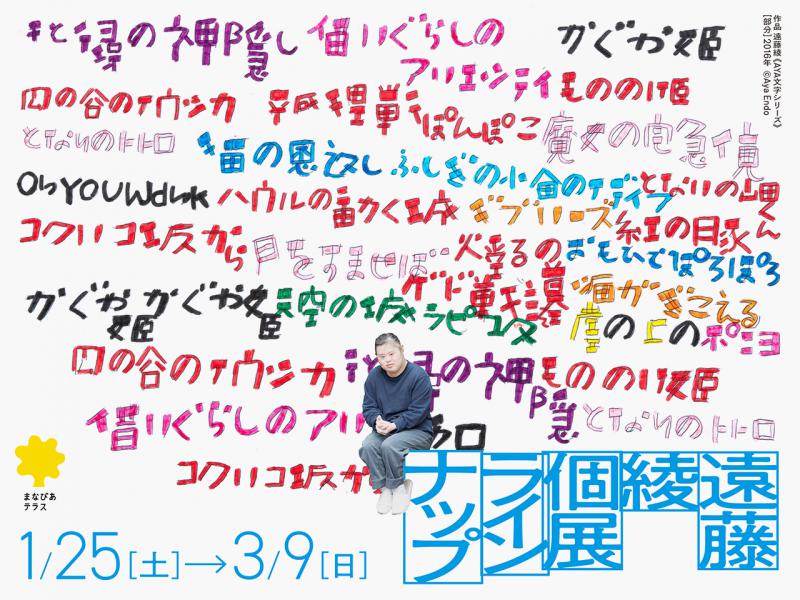 千と尋の神隠し 借りぐらしの
アリエッティ
かぐや姫
風の谷のナウシカ 平成狸
ぽんぽこ
もののけ姫
魔女の宅急便
となりのトトロ
猫の恩返し
ふしぎの
ハウルの動く城
ギブリーズ
となりの山
くん
コクリコ坂から
耳をすませば
火垂るの
おもひでぽろぽろ
紅の豚
ゲド
かぐや姫 かぐや姫
天空の城ラピュタ
猫がきこえる
崖の上のポニョ
風の谷のナウシカ
の神隠
もののけ姫
借りぐらしのアリ
となりのトトロ
コクリコ坂か
作品 遠藤綾《AYA文字シリーズ》
[部分] 2016年 ©Aya Endo
まなびあ
テラス
遠藤
綾
個展
ライン
ナップ
1/25[土]→3/9[日]